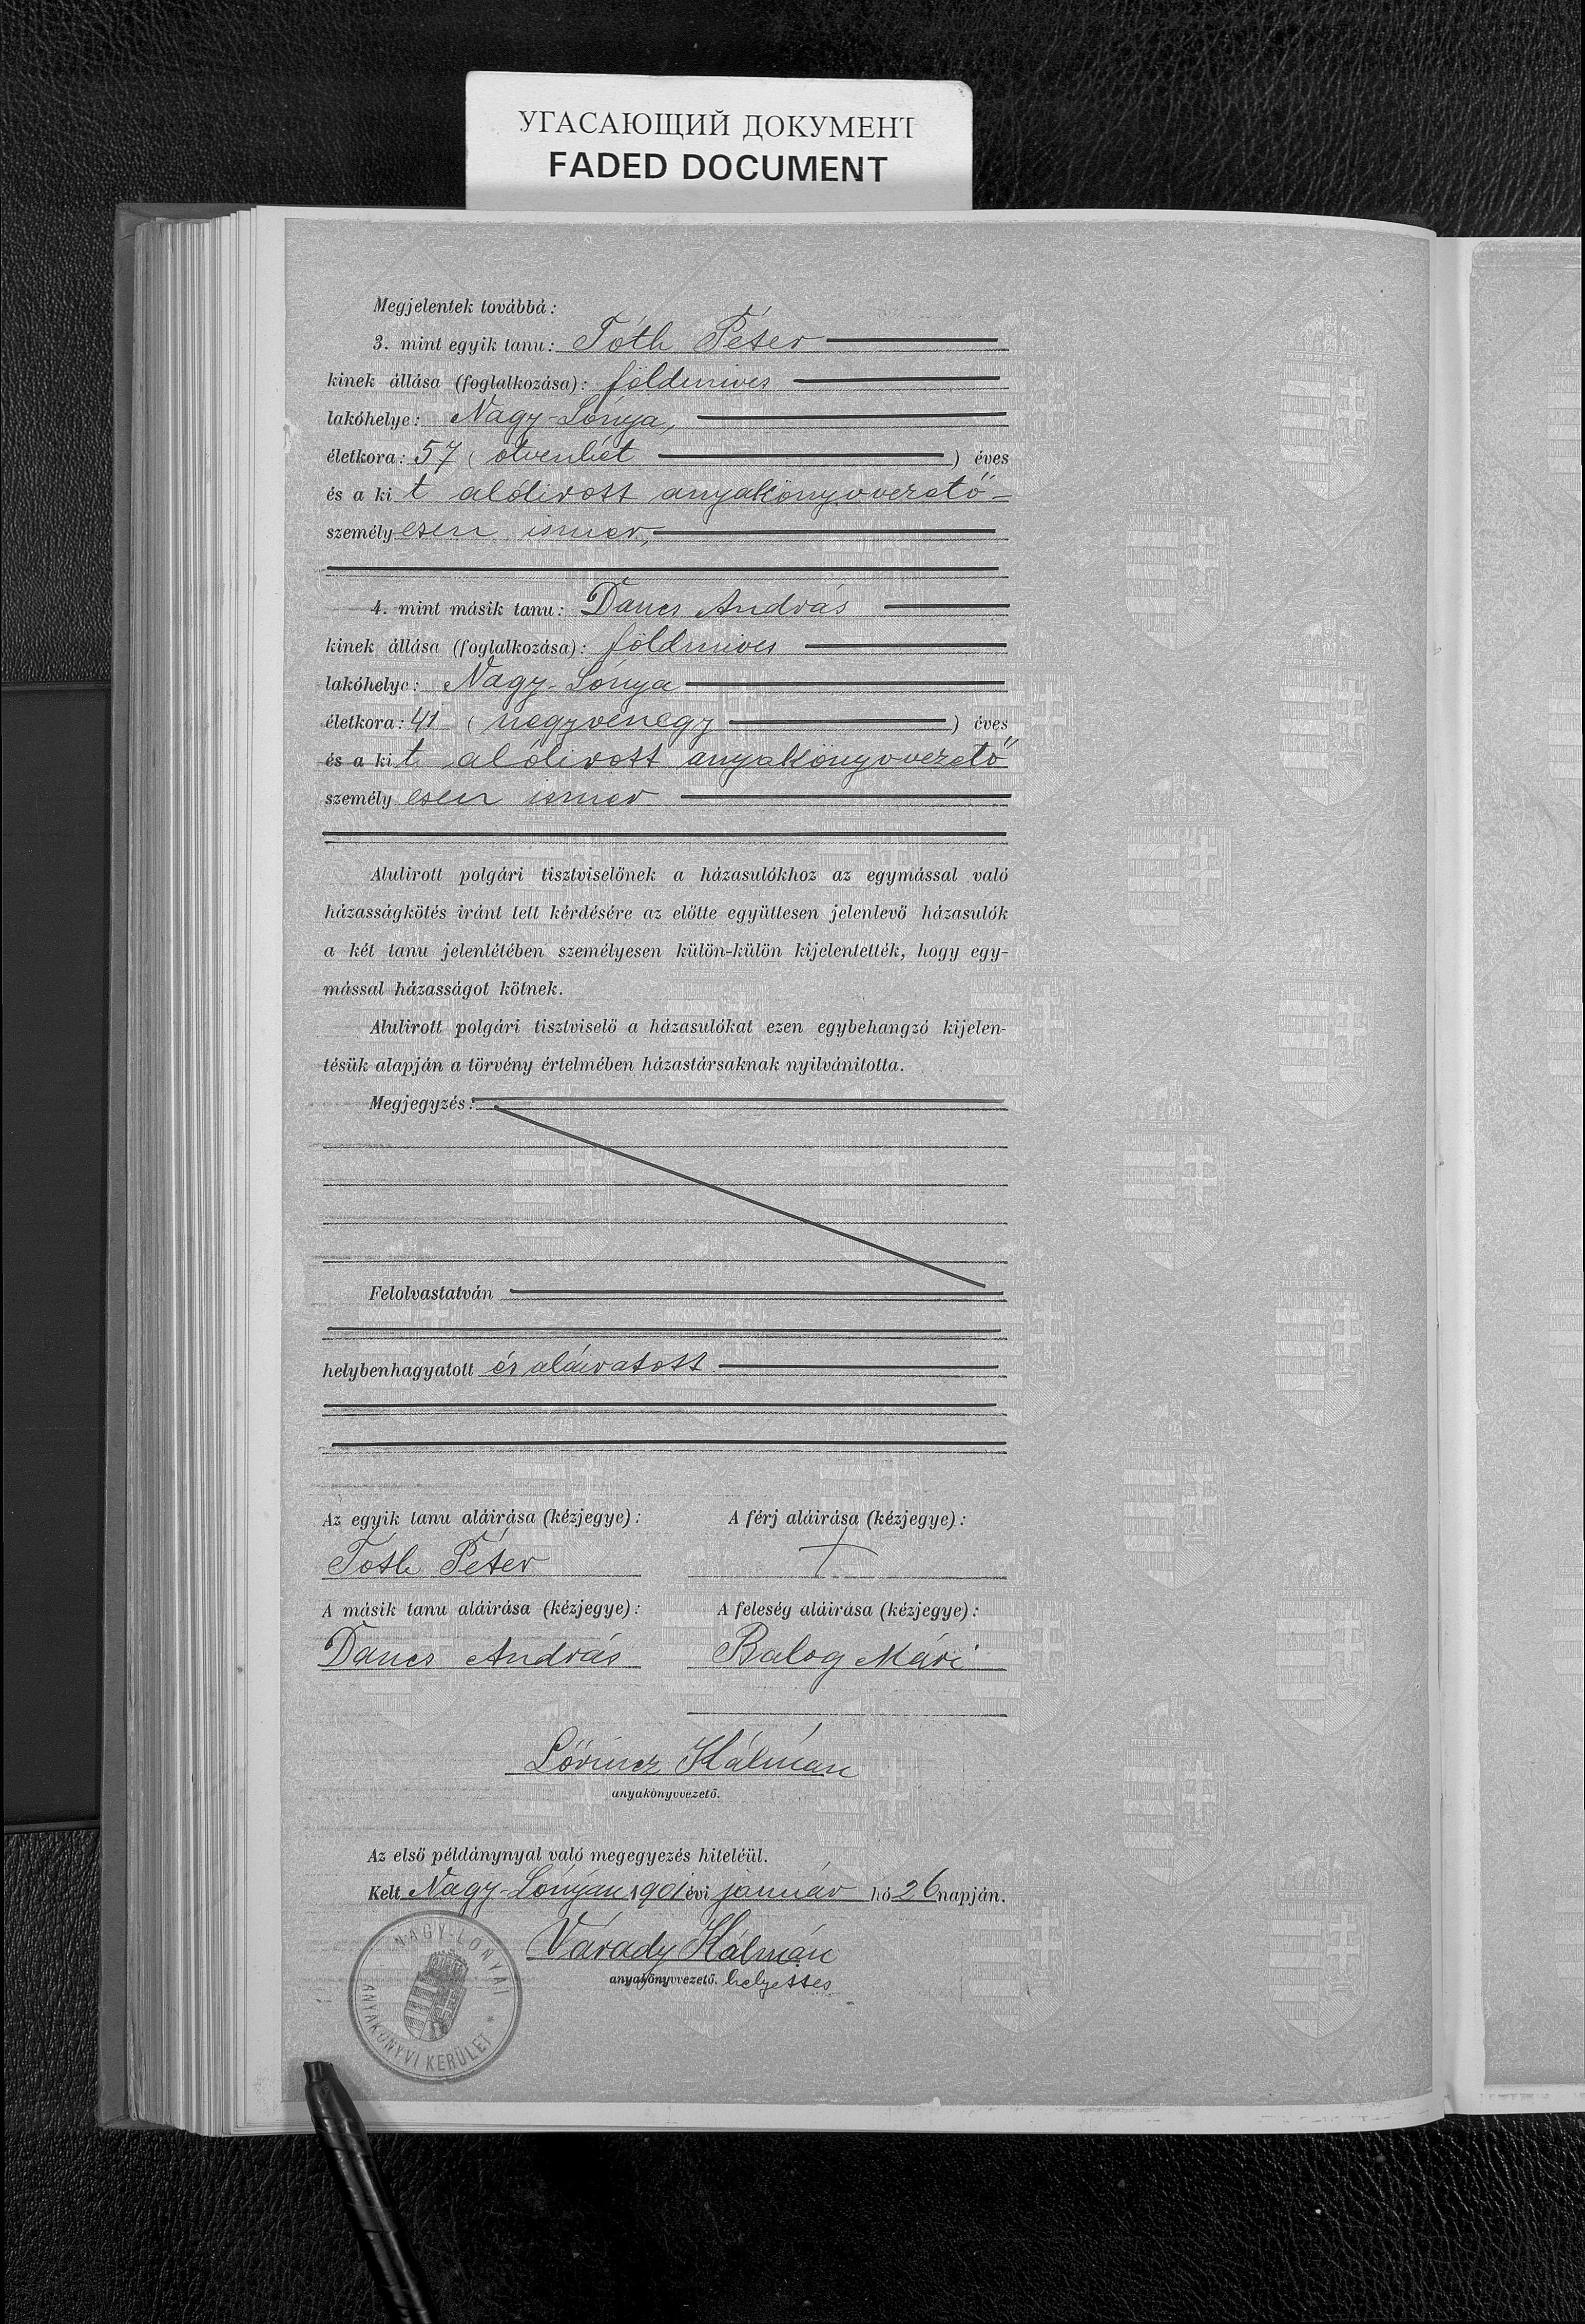 УГАСАЮЩИЙ ДОКУМЕНТ
FADED DOCUMENT
Megjelentek továbbá:
3. mint egyik tanu: Tóth Péter
kinek állása (foglalkozása): földmives
lakóhelye: Nagy-Lónya,
életkora: 57 (ötvenhét) éves
és a kit alólirott anyakönyvvezető
személyesen ismer,
4. mint másik tanu: Dancs András
kinek állása (foglalkozása): földmives
lakóhelye: Nagy-Lónya
életkora: 41 (negyvenegy) éves
és a kit alólirott anyakönyvvezető
személyesen ismer
Alulirott polgári tisztviselőnek a házasulókhoz az egymással való
házasságkötés iránt tett kérdésére az előtte együttesen jelenlevő házasulók
a két tanu jelenlétében személyesen külön-külön kijelentették, hogy egy-
mással házasságot kötnek.
Alulirott polgári tisztviselő a házasulókat ezen egybehangzó kijelen-
tésük alapján a törvény értelmében házastársaknak nyilvánitotta.
Megjegyzés:
Felolvastatván
helybenhagyatott és aláiratott
Az egyik tanu aláirása (kézjegye): A férj aláirása (kézjegye):
Tóth Péter +
A másik tanu aláirása (kézjegye): A feleség aláirása (kézjegye):
Dancs András Balog Mári
Lőrincz Kálmán
anyakönyvvezető.
Az első példánynyal való megegyezés hiteléül.
Kelt Nagy-Lónyán 1901 évi január hó 26 napján.
Várady Kálmán
anyakönyvvezető. helyettes
NAGY-LÓNYAI
ANYAKÖNYVI KERÜLET *